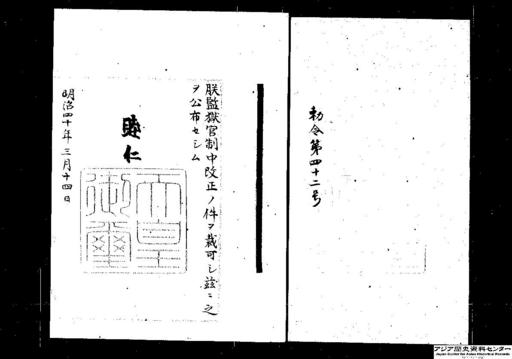 勅令第四十二号
朕監獄官制中改正ノ件ヲ裁可シ茲ニ之
ヲ公布セシム
睦仁
天皇
御璽
明治四十年三月十四日
アジア歴史資料センター
Japan Center for Asian Historical Records